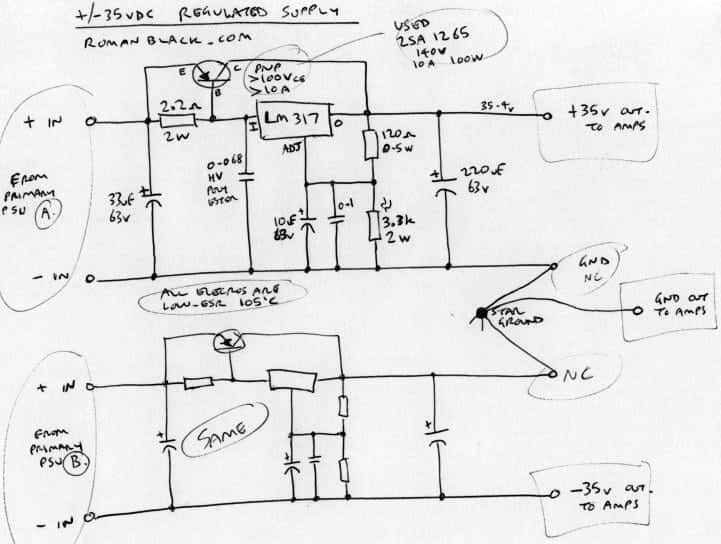 +/-35VDC REGULATED SUPPLY
ROMANBLACK.COM
USED
2SA1265
140V
10A 100W
PNP
>100VCE
>10A
E
C
B
+ IN
2.2Ω
2W
I
LM317
O
ADJ
120Ω
0.5W
35.4V
+35V OUT
TO AMPS
FROM
PRIMARY
PSU A.
33uF
63V
0.068
HV
POLY
ESTER
+
10uF
63V
0.1
3.3k
2W
+
220uF
63V
- IN
ALL ELECROS ARE
LOW-ESR 105°C
GND
NC
STAR
GROUND
GND OUT
TO AMPS
+ IN
NC
FROM
PRIMARY
PSU B.
+
SAME
+
+
- IN
-35V OUT.
TO AMPS